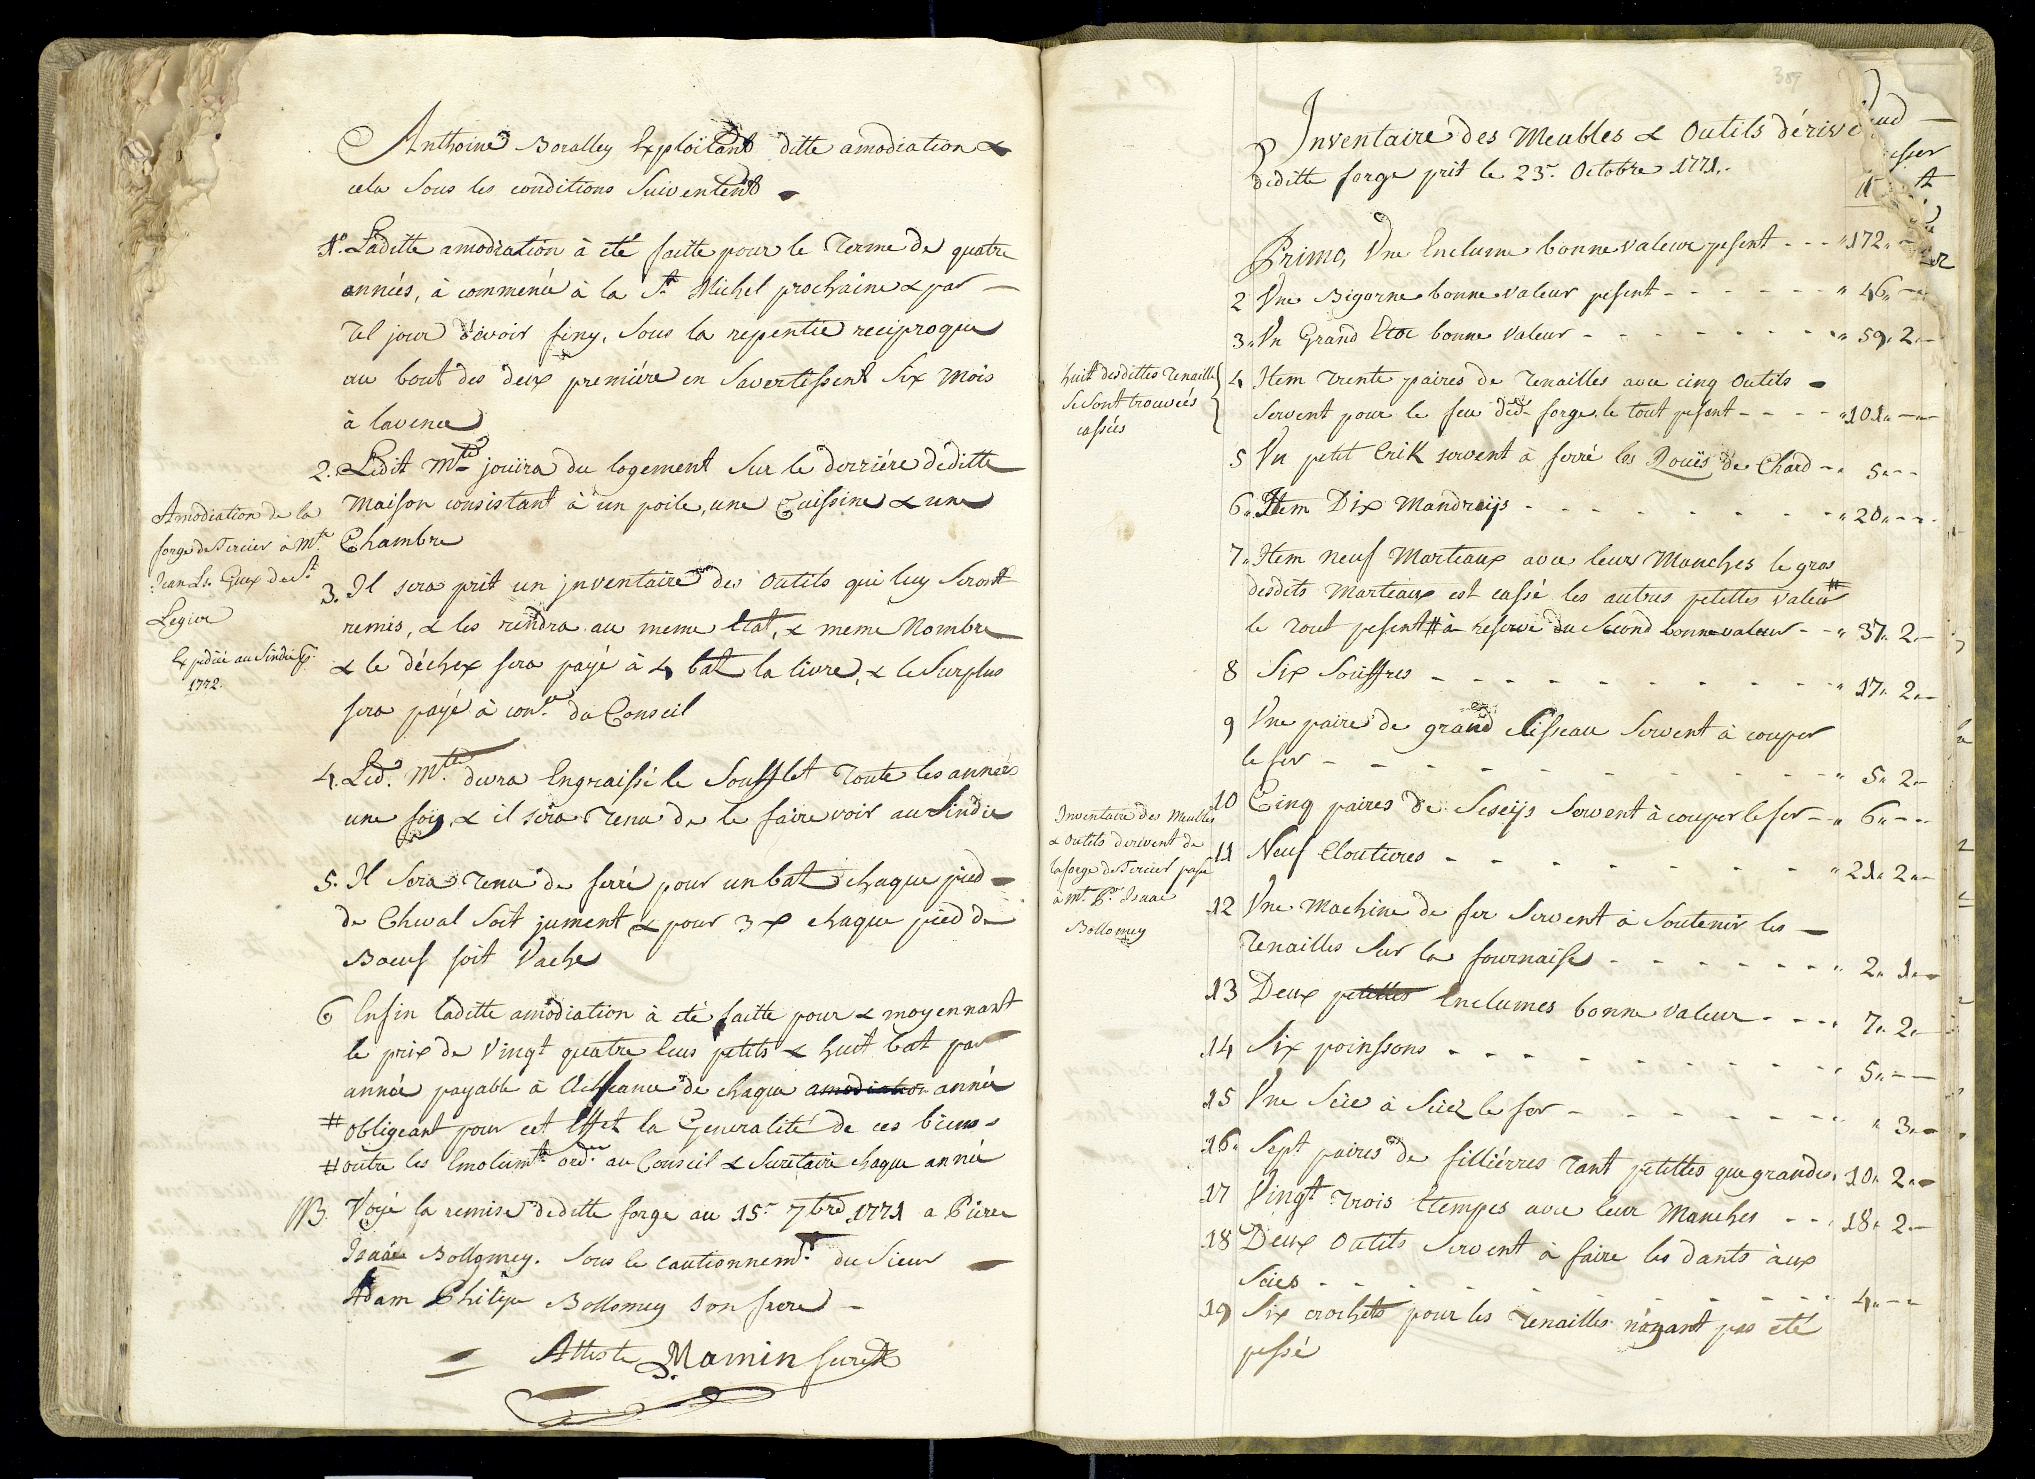 Anthoine Boralley Exploitant ditte amodiation &
cela Sous les conditions Suiventent
1.° Laditte amodiation à été faitte pour le Terme de quatre
années, à commencé à la St. Michel prochaine & par
tel jour devoir finy, Sous la repentie reciproque
au bout des deux première en Savertissent Six Mois
à lavence
2. Ledit Mtre jouïra du logement Sur le derriére deditte
Maison consistant à un poile, une Cuissine & une
Chambre
3. Il sera prit un jnventaire des outils qui luy Seront
remis, & les rendra au meme Etat, & meme Nombre
& le déchex sera payé à 4 bat la livre, & le Surplus
sera payé à cont. du Conseil
4. Led. Mtre devra Engraissé le Soufflet Toute les années
une fois, & il sera Tenu de le faire voir au Sindic
5. Il Sera Tenu de ferré pour un bat chaque pied
de Cheval Soit jument & pour 3 x chaque pied de
Boeuf soit Vache
6 Enfin laditte amodiation à eté faitte pour & moyennant
le prix de Vingt quatre Ecus petits & huit bat par
année payable à Echeance de chaque amodiation année
# obligeant pour cet Effet la Generalité de ces biens
# outre les Emolumts. ordres au Conseil & Secretaire chaque année
NB. Voyé la remise deditte forge au 15e 7bre 1771 a Pierre
Isaac Bollomey. Sous le cautionnemt. du Sieur
Adam Philipe Bollomey son frere
Atteste Mamin Secret.
Amodiation de la
forge de Tercier à Mtre
Jean Ls. Guex de St.
Legier
Expedié au Sindic
1772.
389
Inventaire des Meubles & Outils dérive
deditte forge prit le 23e. Octobre 1771.
Primo, Une Enclume bonne valeur pesent - - - " 172 "
2 Une Bigorne bonne valeur pesent - - - " 46 "
3 " Un Grand Etoc bonne Valeur - - - " 59 " 2 "
4 Item trente paires de Tenailles avec cinq Outils
Servent pour le feu ded. forge, le tout pesent - - - " 101 "
huit desdittes Tenailles
Se Sont trouvées
cassées
5 Un petit Crik servent à serré les Rouës de Chard - " 5 "
6 " Item Dix Mandrijs - - - " 20 "
7 " Item neuf Marteaux avec leurs Manches le gros
desdits Marteaux est cassé les autres petittes valeur #
le Tout pesent # à reserve du Second bonne valeur - - " 37 " 2
8 Six Souffres - - - " 17 " 2 "
9 Une paire de grand Cisseau Servent à couper
le fer - - - " 5 " 2 "
10 Cinq paires de Seseijs Servent à couper le fer - " 6 "
11 Neuf Cloutieres - - - " 21 " 2 "
Inventaire des Meubles
& outils derivent de
la forge de Tercier
à Mt. Pre. Isaac
Bollomey
12 Une machine de fer Servent à Soutenir les
Tenailles Sur la fournaise - - - " 2 " 1 "
13 Deux petittes Enclumes bonne Valeur - - - " 7 " 2 "
14 Six poinssons - - - " 5 "
15 Une Scie à Sciez le fer - - - " 3 "
16 " Sept paires de filliéres Tant petittes que grandes " 10 " 2 "
17 Vingt Trois Etempes avec leur Manches - - " 18 " 2
18 Deux Outils Servent à faire les dants aux
Scies - - - 4 "
19 Six crochets pour les Tenailles n'ayant pas eté
pessé